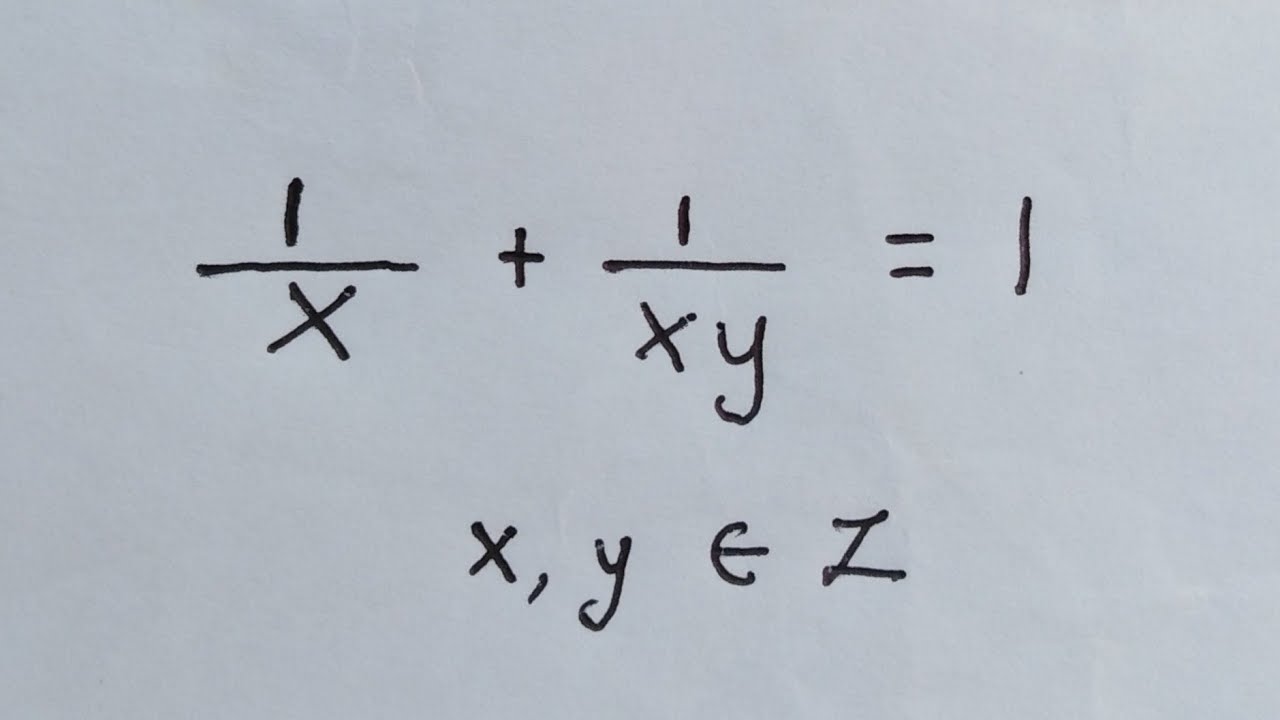 1/x + 1/xy = 1
x, y ∈ Z